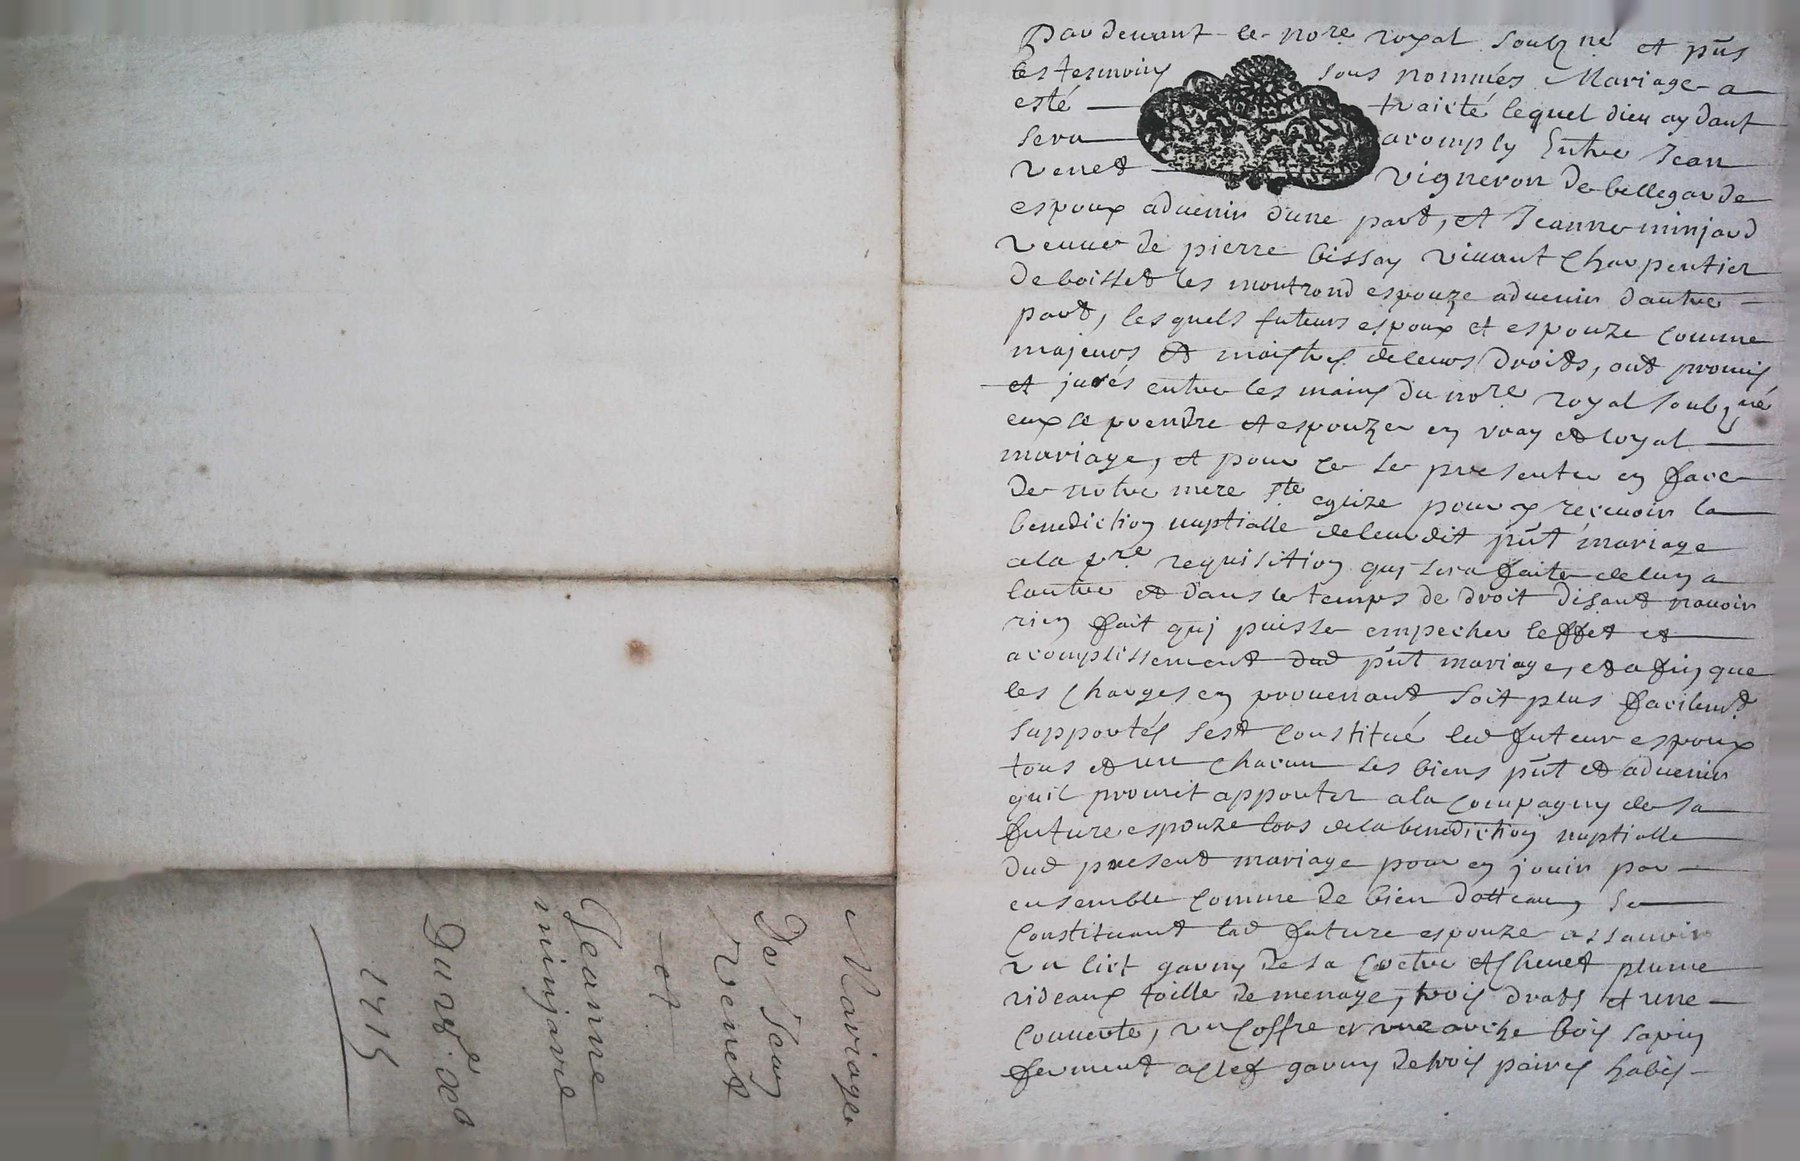 Pardevant le no.re royal soubz.né et pñs
les tesmoins sous nommés Mariage a
esté traicté lequel dieu aydant
sera acomply Entre Jean
venet vigneron de bellegarde
espoux aduenir dune part, et Jeanne minjard
veuue de pierre bissay viuant charpentier
de boisset les montrond espouze aduenir dautre
part, lesquels futeurs espoux et espouze comme
majeurs et maistres de leurs droits, ont promis
et jurés entre les mains du no.re royal soubz.né
eux se prendre et espouzer en vray et loyal
mariage, et pour ce se presenter en face
de notre mere ste eglize pour y receuoir la
benediction nuptialle de leurdit pñt mariage
a la p.re requisition qui sera faite de lun a
lautre et dans le temps de droit disant nauoir
rien fait quj puisse empecher leffet et
acomplissement dud pñt mariage, et afin que
les charges en prouenant soit plus facilem.t
supportés sest constitué led futeur espoux
tous et un chacun ses biens pñt et aduenir
quil promet apporter a la compagny de sa
future espouze lors de la benediction nuptialle
dud present mariage pour en jouir par
ensemble comme de bien dotteaux, se
constituant lad future espouze assauoir
vn lict garny de sa coetre cheuet plume
rideaux toille de menage, trois draps et une
couuerte, vn coffre et vne arche bois sapin
fermant a clef garny de trois paires habis
Mariage
De Jean
Venet
et
Jeanne
minjard
Du 29 e. 8.
1715